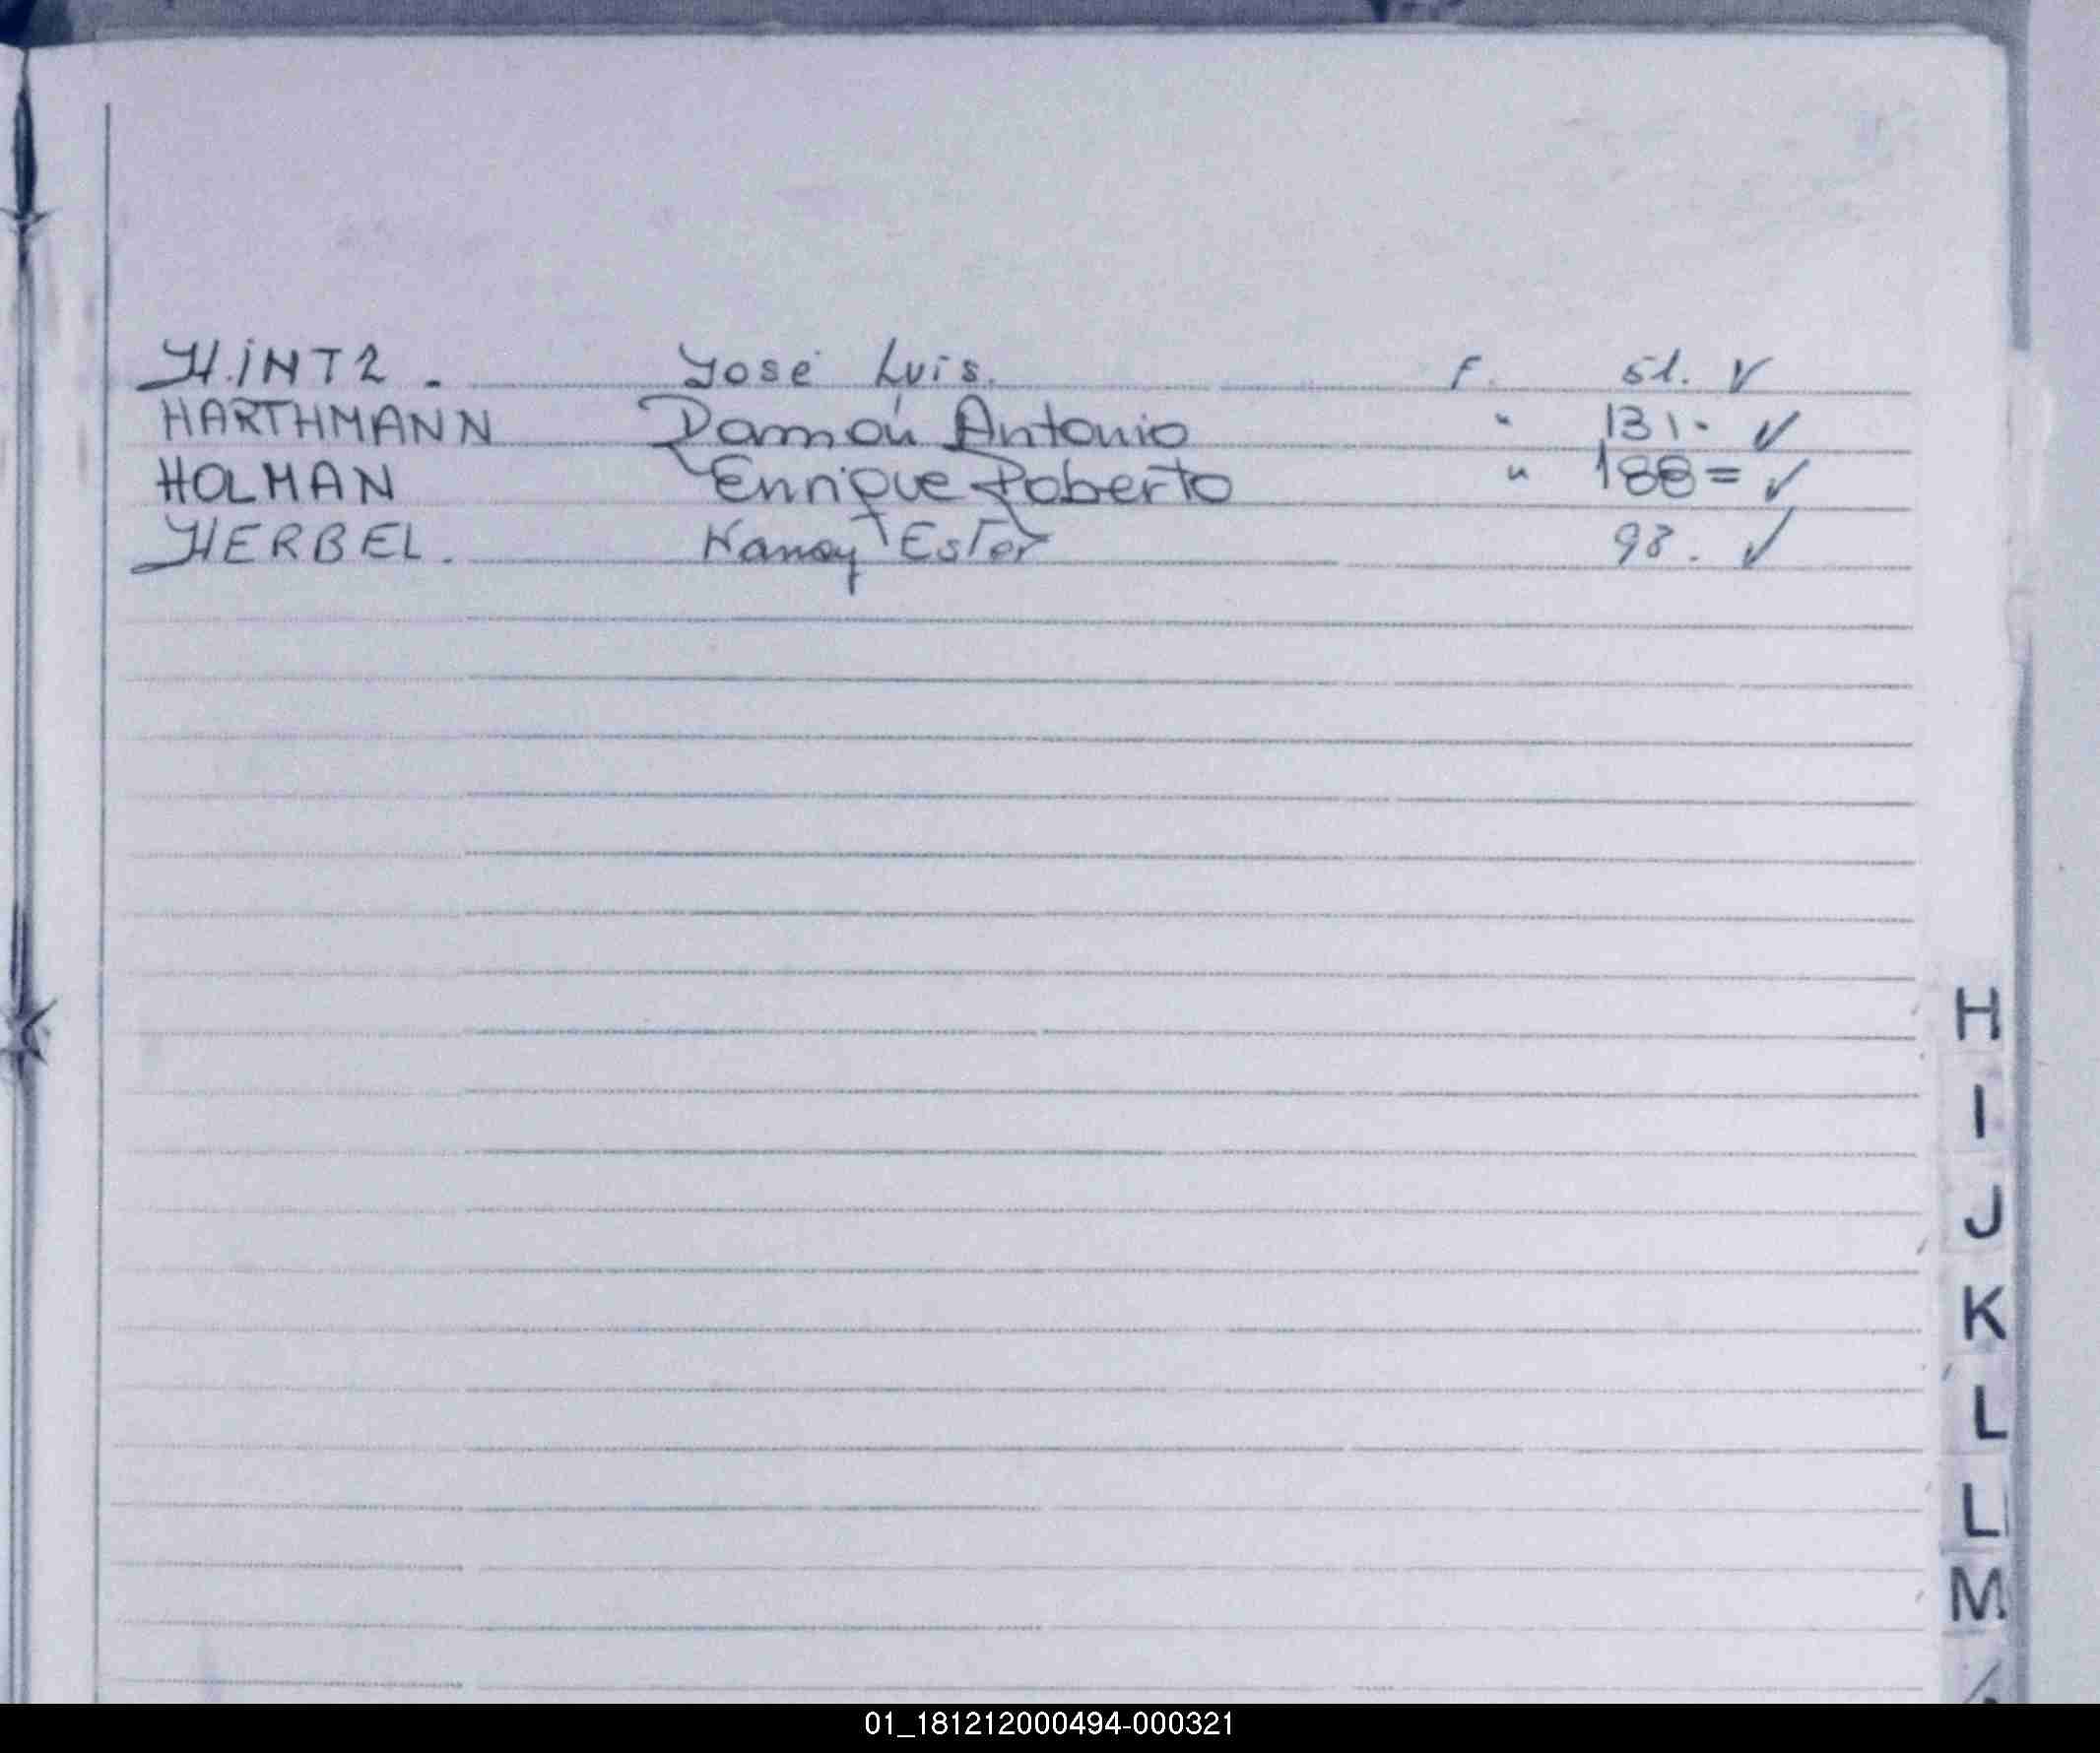 HINTZ. José Luis. F. 51. ✓
HARTHMANN Damón Antonio " 131. ✓
HOLMAN Enrique Roberto " 188= ✓
HERBEL. Nancy Ester 98. ✓
H
I
J
K
L
L
M
01_181212000494-000321